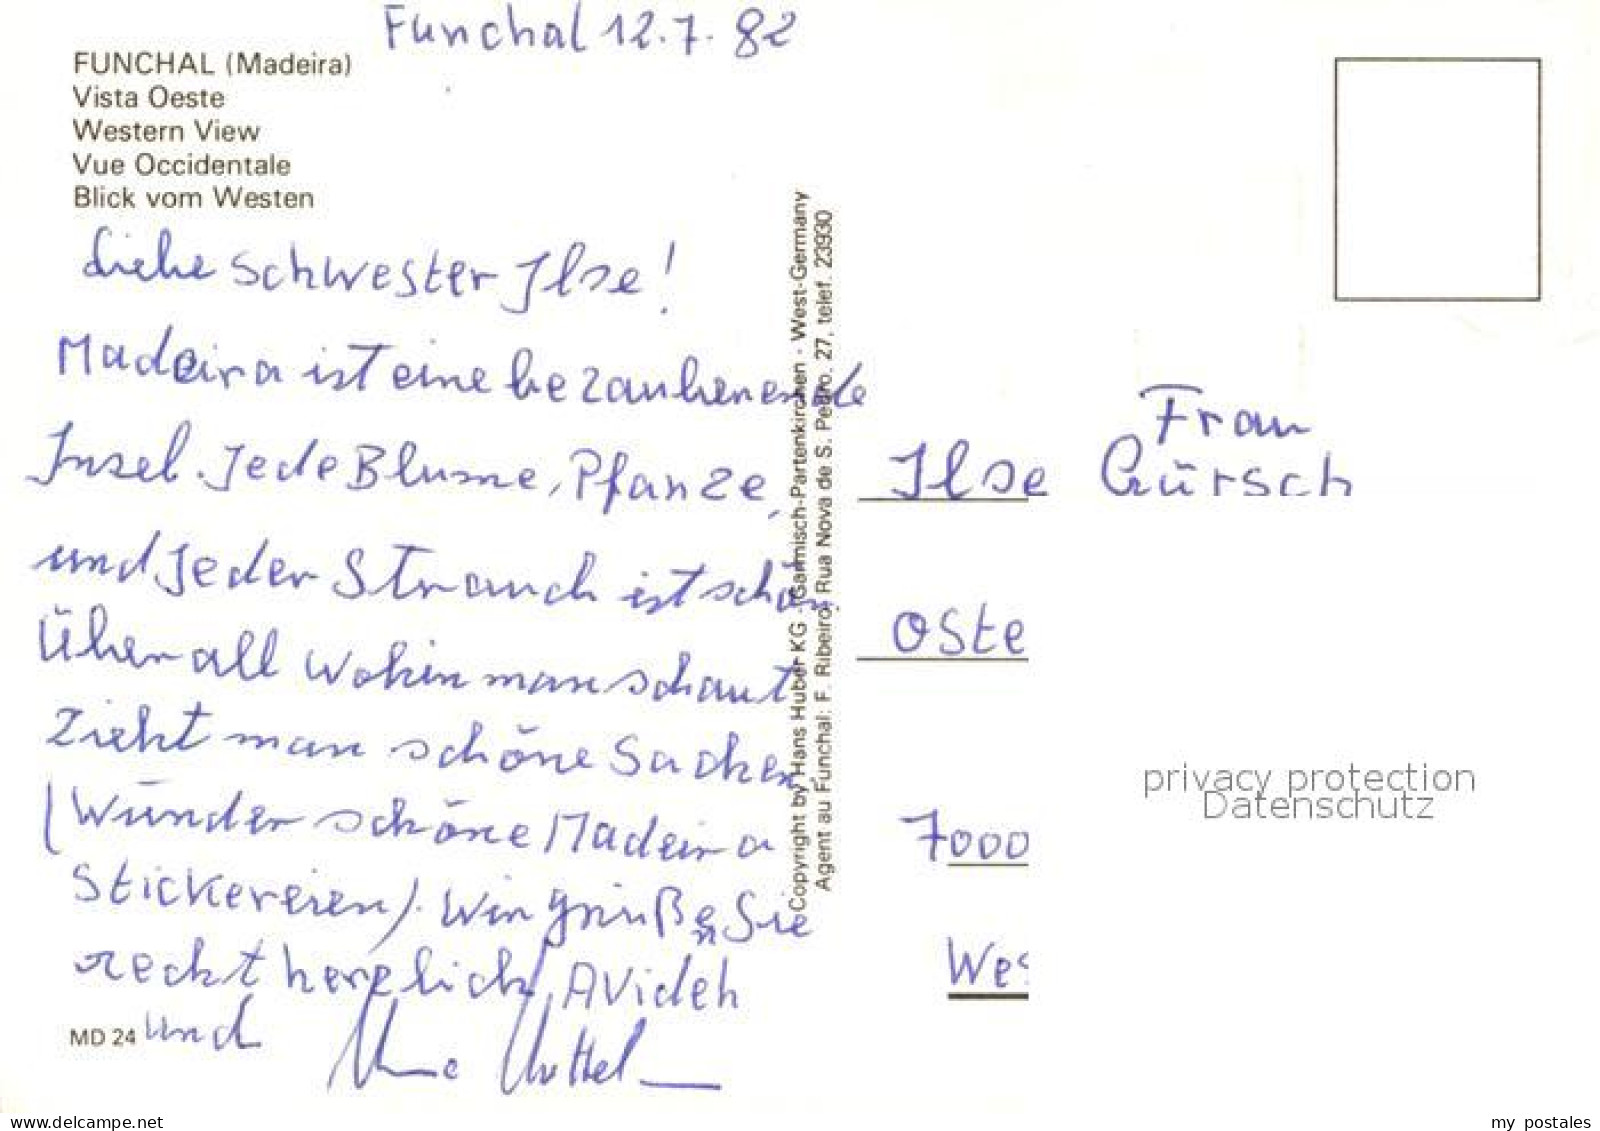 Funchal 12.7.82
FUNCHAL (Madeira)
Vista Oeste
Western View
Vue Occidentale
Blick vom Westen
Liebe Schwester Ilse!
Madeira ist eine bezaubernende
Insel. Jede Blume, Pfanze,
und Jeder Strauch ist schön
Überall wohin man schaut
Zieht man schöne Sachen
(Wunder schöne Madeira
Stickereien). Wir grüßen Sie
recht herzlich, Avideh
und
MD 24
Copyright by Hans Huber KG · Garmisch-Partenkirchen · West-Germany
Agent au Funchal: F. Ribeiro, Rua Nova de S. Pedro, 27, telef. 23930
Frau
Ilse Gürsch
Oste
7000
Wes
privacy protection
Datenschutz
delcampe.net
my postales